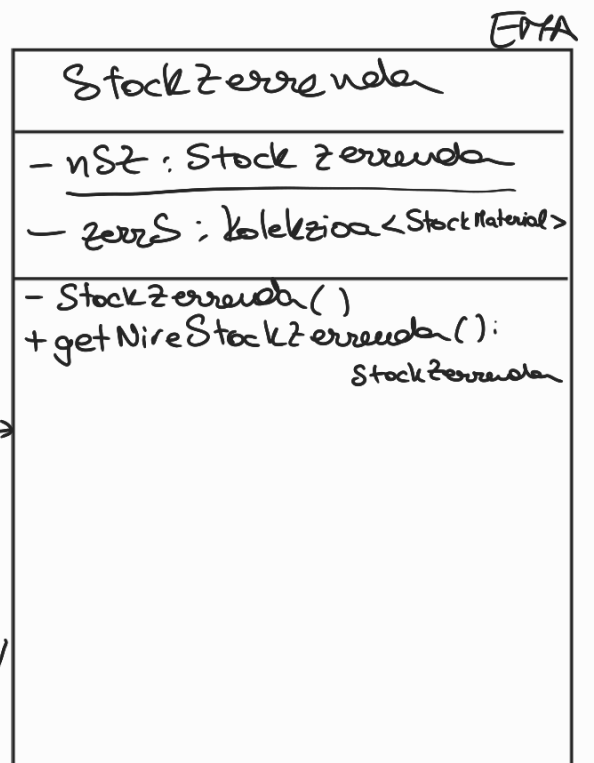 EMA
StockZerrenda
- nSZ : Stock Zerrenda
- zerrS : Kolekzioa<StockMaterial>
- StockZerrenda()
+ getNireStockZerrenda():
StockZerrenda